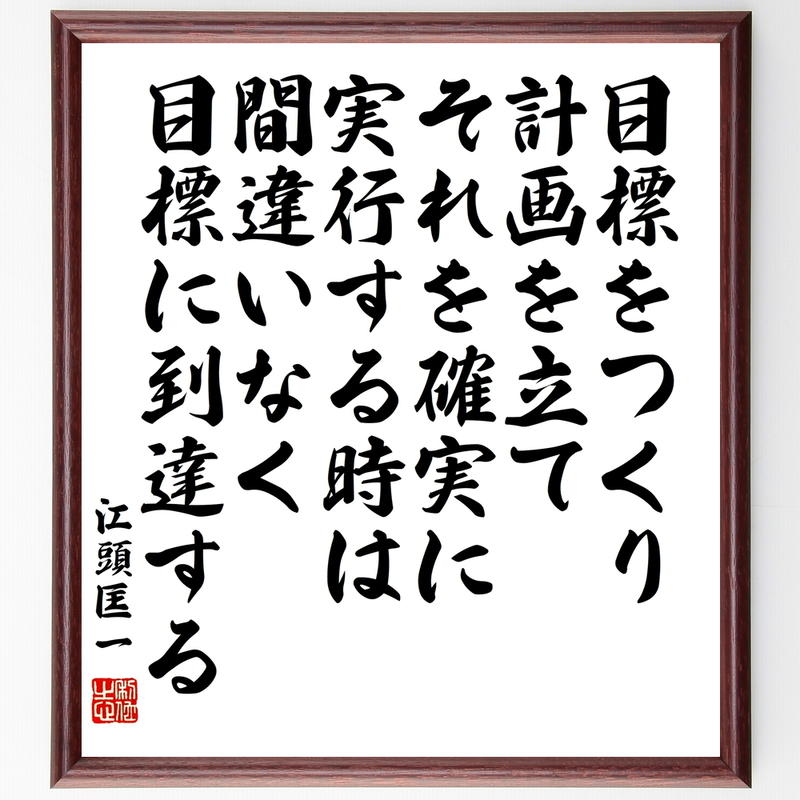 目標をつくり
計画を立て
それを確実に
実行する時は
間違いなく
目標に到達する
江頭匡一